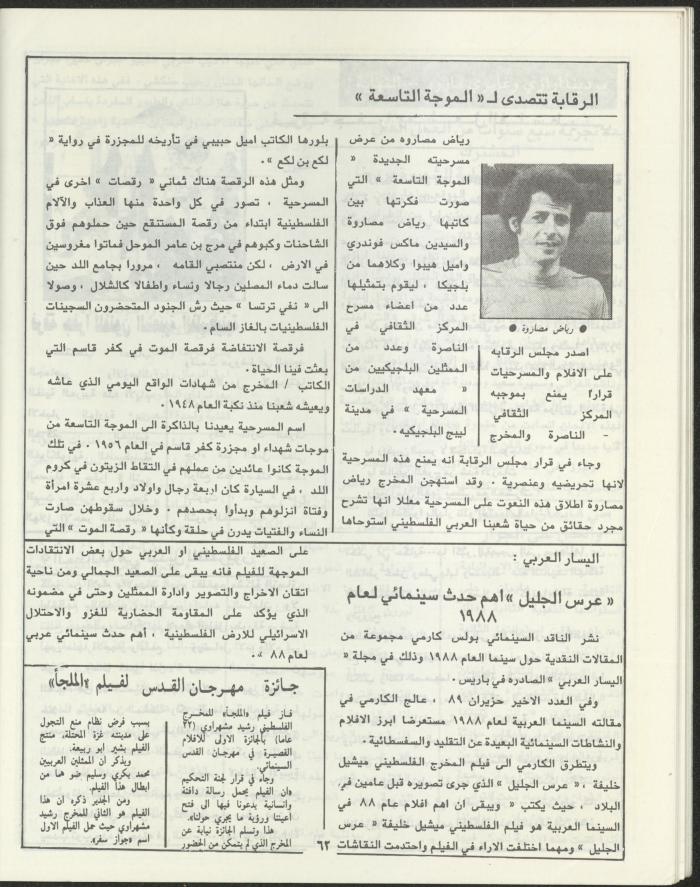 الرقابة تتصدى لـ « الموجة التاسعة »
● رياض مصاروة ●
اصدر مجلس الرقابه
على الافلام والمسرحيات
قرارا يمنع بموجبه
المركز الثقافي
- الناصرة والمخرج
رياض مصاروه من عرض
مسرحيته الجديدة «
الموجة التاسعة » التي
صورت فكرتها بين
كاتبها رياض مصاروة
والسيدين ماكس فوندري
واميل هيبوا وكلاهما من
بلجيكا ، ليقوم بتمثيلها
عدد من اعضاء مسرح
المركز الثقافي في
الناصرة وعدد من
الممثلين البلجيكيين من
« معهد الدراسات
المسرحية » في مدينة
لييج البلجيكيه .
وجاء في قرار مجلس الرقابة انه يمنع هذه المسرحية
لانها تحريضيه وعنصرية . وقد استهجن المخرج رياض
مصاروة اطلاق هذه النعوت على المسرحية معللا انها تشرح
مجرد حقائق من حياة شعبنا العربي الفلسطيني استوحاها
بلورها الكاتب اميل حبيبي في تأريخه للمجزرة في رواية «
لكع بن لكع » .
ومثل هذه الرقصة هناك ثماني « رقصات » اخرى في
المسرحية ، تصور في كل واحدة منها العذاب والآلام
الفلسطينية ابتداء من رقصة المستنقع حين حملوهم فوق
الشاحنات وكبوهم في مرج بن عامر الموحل فماتوا مغروسين
في الارض ، لكن منتصبي القامه ، مرورا بجامع اللد حين
سالت دماء المصلين رجالا ونساء واطفالا كالشلال ، وصولا
الى « نفي ترتسا » حيث رش الجنود المتحضرون السجينات
الفلسطينيات بالغاز السام .
فرقصة الانتفاضة فرقصة الموت في كفر قاسم التي
بعثت فينا الحياة .
الكاتب / المخرج من شهادات الواقع اليومي الذي عاشه
ويعيشه شعبنا منذ نكبة العام ١٩٤٨ .
اسم المسرحية يعيدنا بالذاكرة الى الموجة التاسعة من
موجات شهداء او مجزرة كفر قاسم في العام ١٩٥٦ . في تلك
الموجة كانوا عائدين من عملهم في التقاط الزيتون في كروم
اللد ، في السيارة كان اربعة رجال واولاد واربع عشرة امرأة
وفتاة انزلوهم وبدأوا بحصدهم . وخلال سقوطهن صارت
النساء والفتيات يدرن في حلقة وكأنها « رقصة الموت » التي
اليسار العربي :
« عرس الجليل » اهم حدث سينمائي لعام
١٩٨٨
نشر الناقد السينمائي بولس كارمي مجموعة من
المقالات النقدية حول سينما العام ١٩٨٨ وذلك في مجلة «
اليسار العربي » الصادره في باريس .
وفي العدد الاخير حزيران ٨٩ ، عالج الكارمي في
مقالته السينما العربية لعام ١٩٨٨ مستعرضا ابرز الافلام
والنشاطات السينمائية البعيدة عن التقليد والسفسطائية .
ويتطرق الكارمي الى فيلم المخرج الفلسطيني ميشيل
خليفة ، « عرس الجليل » الذي جرى تصويره قبل عامين في
البلاد ، حيث يكتب « ويبقى ان اهم افلام عام ٨٨ في
السينما العربية هو فيلم الفلسطيني ميشيل خليفة « عرس
الجليل » ومهما اختلفت الاراء في الفيلم واحتدمت النقاشات
على الصعيد الفلسطيني او العربي حول بعض الانتقادات
الموجهة للفيلم فانه يبقى على الصعيد الجمالي ومن ناحية
اتقان الاخراج والتصوير وادارة الممثلين وحتى في مضمونه
الذي يؤكد على المقاومة الحضارية للغزو والاحتلال
الاسرائيلي للارض الفلسطينية ، أهم حدث سينمائي عربي
لعام ٨٨ » .
جائزة مهرجان القدس لفيلم «الملجأ»
فاز فيلم «الملجأ» للمخرج
الفلسطيني رشيد مشهراوي (٢٢
عاما) بالجائزة الاولى للافلام
القصيرة في مهرجان القدس
السينمائي.
وجاء في قرار لجنة التحكيم
«ان الفيلم يحمل رسالة دافئة
وانسانية يدعونا فيها الى فتح
أعيننا ورؤية ما يجري حولنا».
هذا وتسلم الجائزة نيابة عن
المخرج الذي لم يتمكن من الحضور
بسبب فرض نظام منع التجول
على مدينته غزة المحتلة، منتج
الفيلم بشير ابو ربيعة.
ويذكر ان الممثلين العربيين
محمد بكري وسليم ضو هما من
ابطال هذا الفيلم.
ومن الجدير ذكره ان هذا
الفيلم هو الثاني للمخرج رشيد
مشهراوي حيث حمل الفيلم الاول
اسم «جواز سفر».
٦٢